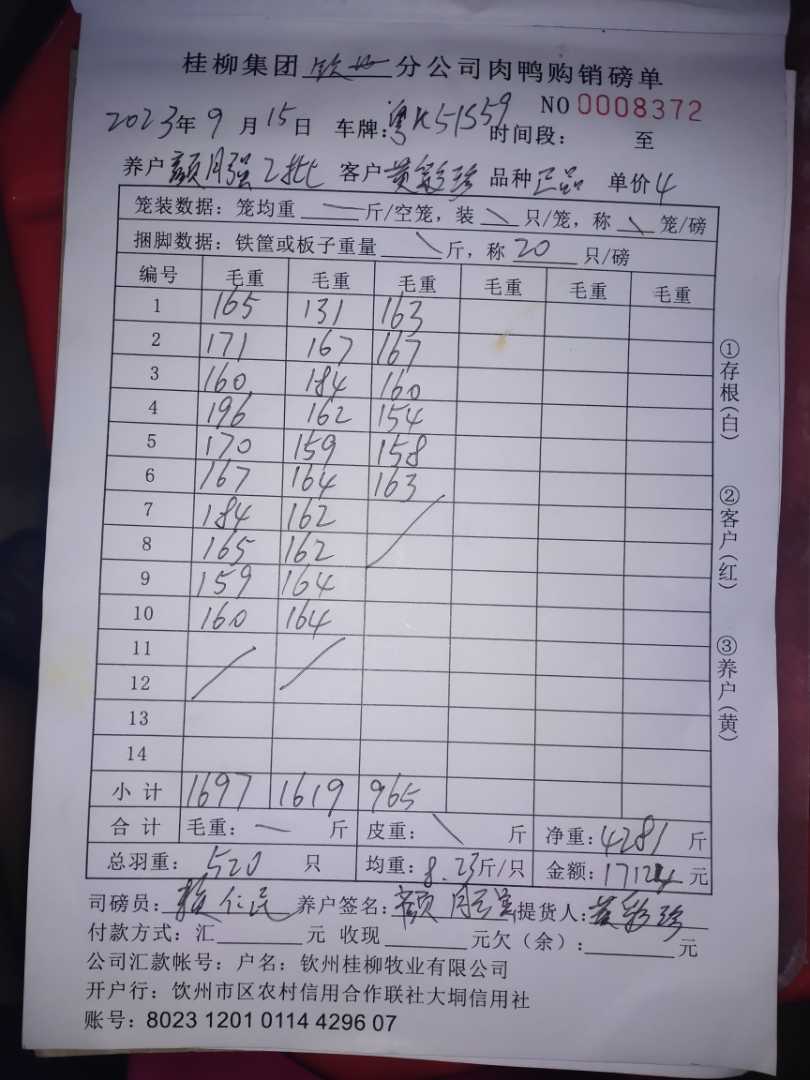 桂柳集团钦州分公司肉鸭购销磅单
NO 0008372
2023年9月15日 车牌:粤K51559 时间段: 至
养户颜月强乙批 客户黄彩珍 品种正品 单价4
笼装数据:笼均重 斤/空笼,装 只/笼,称 笼/磅
捆脚数据:铁筐或板子重量 斤,称20只/磅
编号 毛重 毛重 毛重 毛重 毛重 毛重
1 165 131 163
2 171 167 167
3 160 184 160
4 196 162 154
5 170 159 158
6 167 164 163
7 184 162
8 165 162
9 159 164
10 160 164
11
12
13
14
小计 1697 1619 965
合计 毛重: 斤 皮重: 斤 净重:4281斤
总羽重:520只 均重:8.23斤/只 金额:17124元
司磅员:赖仁民 养户签名:颜月强 提货人:黄彩珍
付款方式:汇 元 收现 元欠(余): 元
公司汇款帐号:户名:钦州桂柳牧业有限公司
开户行:饮州市区农村信用合作联社大垌信用社
账号:8023 1201 0114 4296 07
①存根(白)
②客户(红)
③养户(黄)